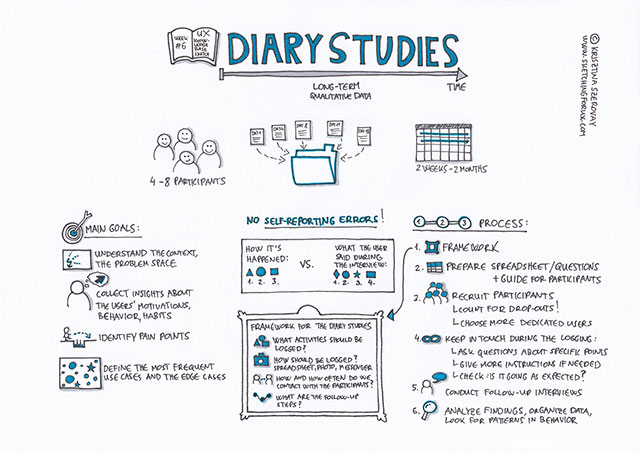 WEEK
#6
UX
KNOW-
LEDGE
BASE
SKETCH
DIARY STUDIES
LONG-TERM
QUALITATIVE DATA
TIME
© KRISZTINA SZEROVAY
WWW.SKETCHINGFORUX.COM
4-8 PARTICIPANTS
DAY 1
2 WEEKS-2 MONTHS
MAIN GOALS:
UNDERSTAND THE CONTEXT,
THE PROBLEM SPACE
COLLECT INSIGHTS ABOUT
THE USERS' MOTIVATIONS,
BEHAVIOR, HABITS
IDENTIFY PAIN POINTS
DEFINE THE MOST FREQUENT
USE CASES AND THE EDGE CASES
NO SELF-REPORTING ERRORS!
HOW IT'S
HAPPENED:
1. 2. 3.
VS.
WHAT THE USER
SAID DURING
THE INTERVIEW:
1. 2. 3. 4.
FRAMEWORK FOR THE DIARY STUDIES
WHAT ACTIVITIES SHOULD BE
LOGGED?
HOW SHOULD BE LOGGED?
SPREADSHEET, PHOTO, MESSENGER
HOW AND HOW OFTEN DO WE
CONTACT WITH THE PARTICIPANTS?
WHAT ARE THE FOLLOW-UP
STEPS?
1 2 3 PROCESS:
1. FRAMEWORK
2. PREPARE SPREADSHEET/QUESTIONS
+ GUIDE FOR PARTICIPANTS
2. RECRUIT PARTICIPANTS
COUNT FOR DROP-OUTS!
CHOOSE MORE DEDICATED USERS
4. KEEP IN TOUCH DURING THE LOGGING:
ASK QUESTIONS ABOUT SPECIFIC POINTS
GIVE MORE INSTRUCTIONS IF NEEDED
CHECK: IS IT GOING AS EXPECTED?
5. CONDUCT FOLLOW-UP INTERVIEWS
6. ANALYZE FINDINGS, ORGANIZE DATA,
LOOK FOR PATTERNS IN BEHAVIOR